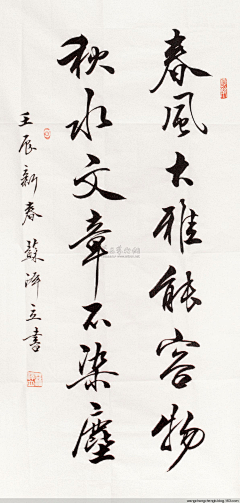 春風大雅能容物
秋水文章不染塵
壬辰新春蘇澤立書